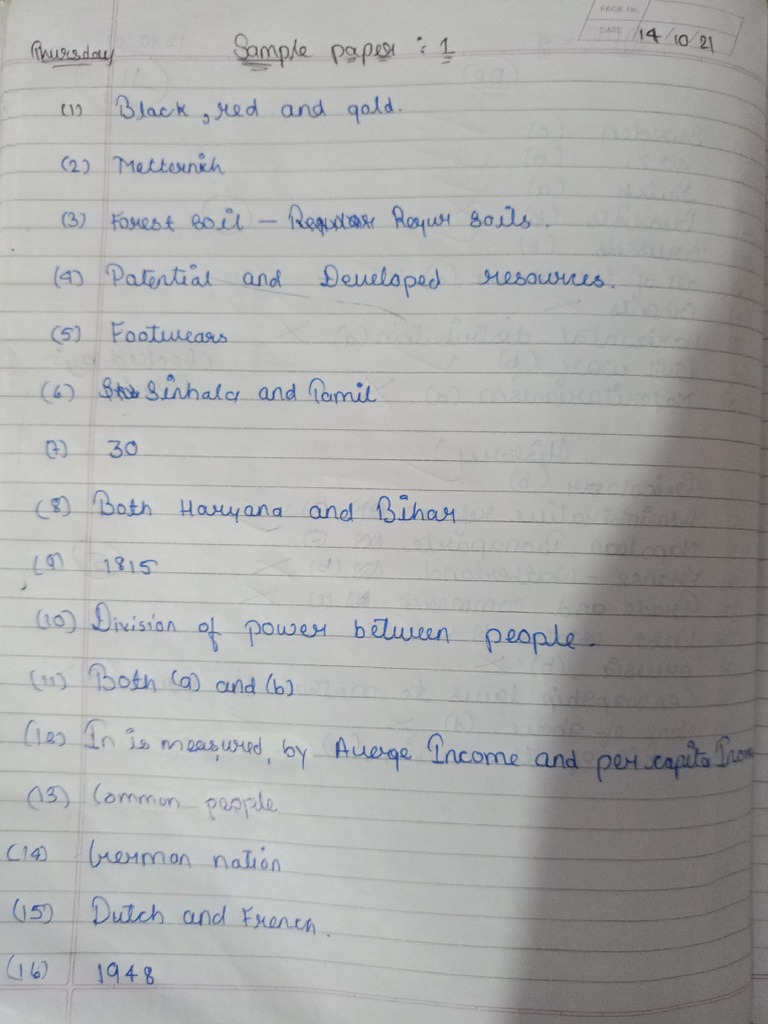 PAGE No.
DATE 14/10/21
Thursday Sample paper : 1
(1) Black, red and gold.
(2) Metternich
(3) Forest soil – Regur soils.
(4) Potential and Developed resources.
(5) Footwears
(6) Sinhala and Tamil
(7) 30
(8) Both Haryana and Bihar
(9) 1815
(10) Division of power between people.
(11) Both (a) and (b)
(12) In is measured, by Averge Income and per capita
(13) Common people
(14) German nation
(15) Dutch and French.
(16) 1948